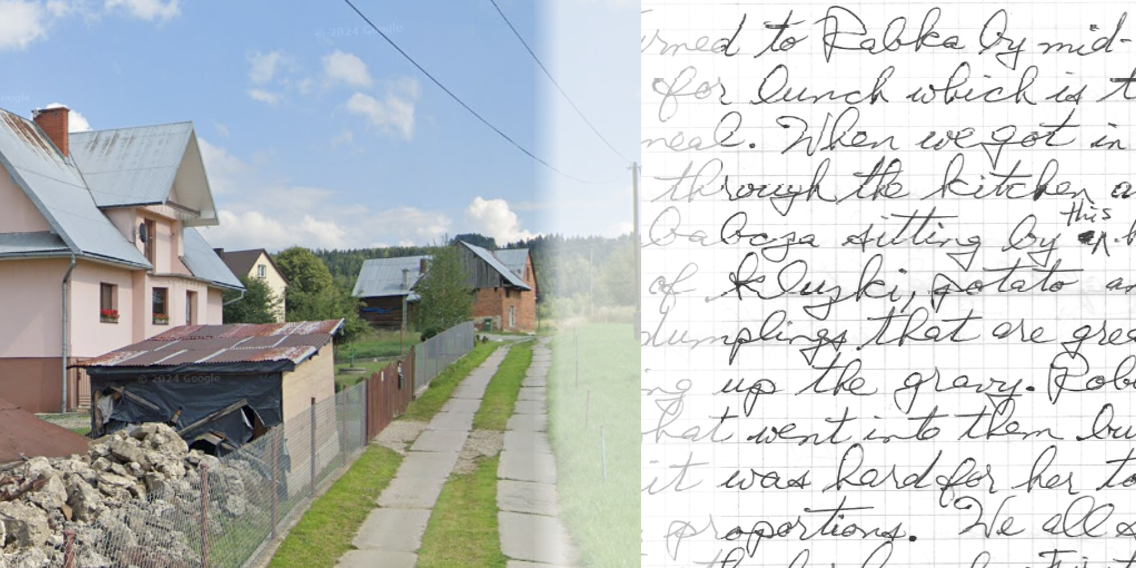 © 2024 Google
Google
© 2024 Google
rned to Rabka by mid-
for lunch which is t
meal. When we got in
through the kitchen a
babcza sitting by this
of kluzki, potato an
dumplings that are grea
ng up the gravy. Rob
hat went into them bu
it was hard for her to
proportions. We all s